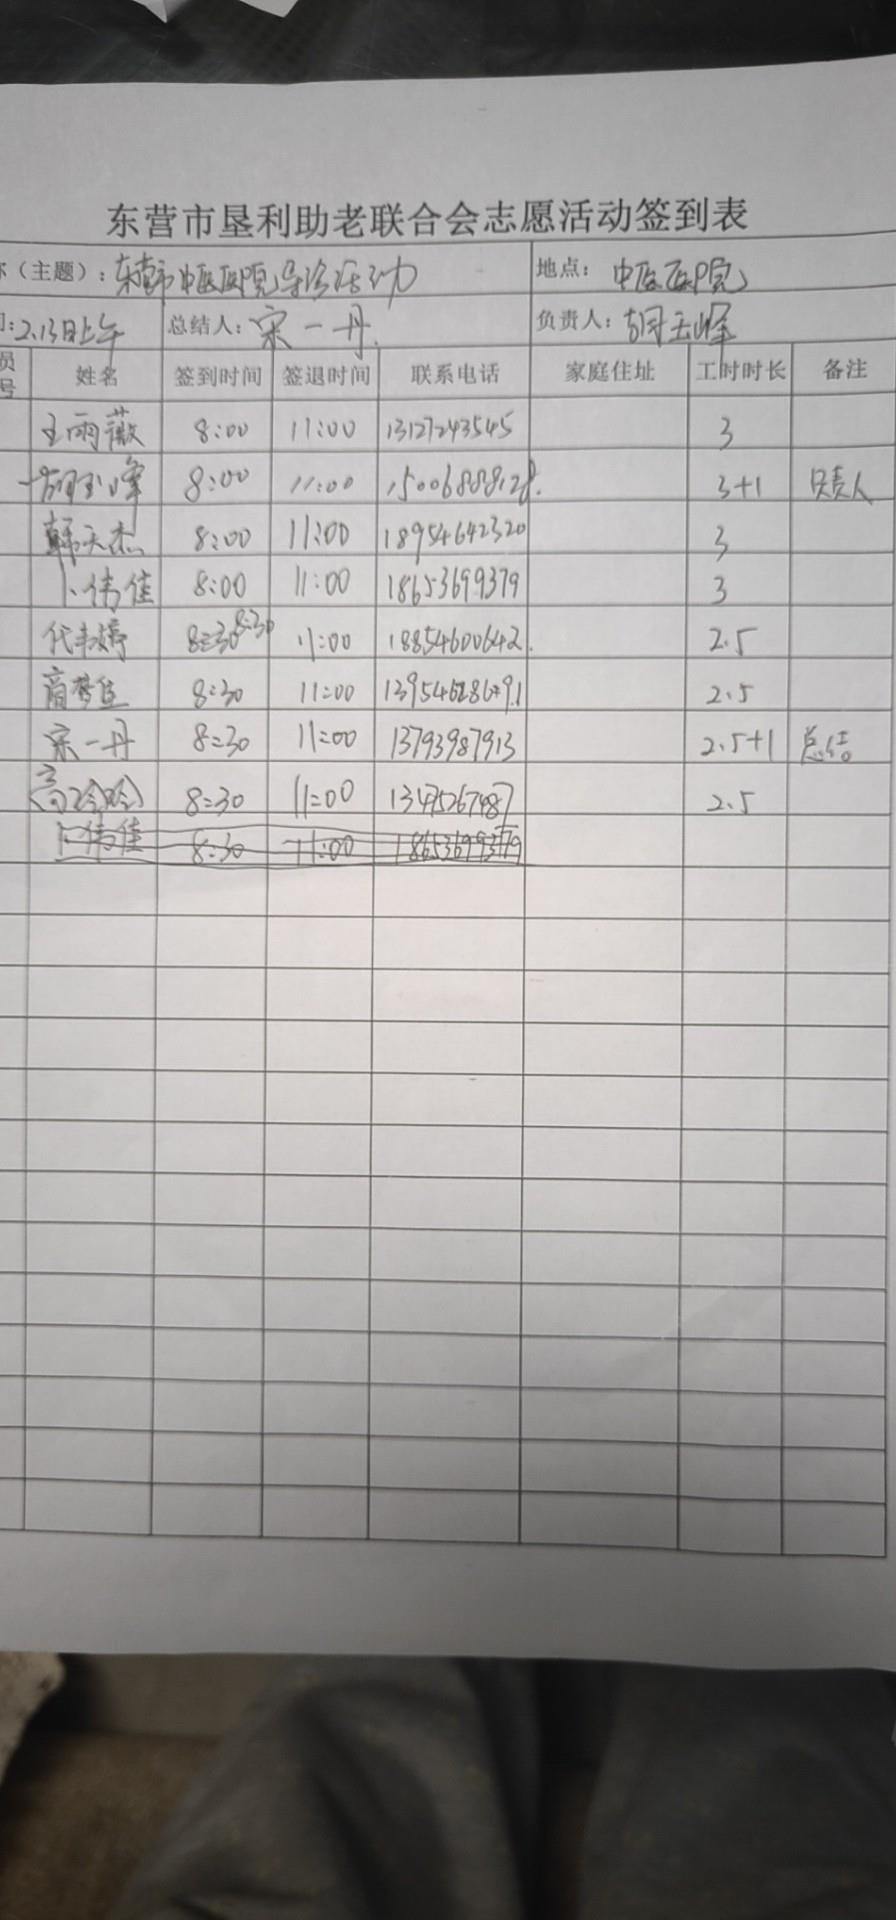 东营市垦利助老联合会志愿活动签到表
（主题）：东营市中医医院导诊活动 地点：中医医院
：2.13日上午 总结人：宋一丹 负责人：胡玉峰
员号 姓名 签到时间 签退时间 联系电话 家庭住址 工时时长 备注
王雨薇 8:00 11:00 13127243545 3
胡玉峰 8:00 11:00 15006888128. 3+1 负责人
韩天杰 8:00 11:00 18954642320 3
卜伟佳 8:00 11:00 18653699379 3
8:30 8:30 11:00 18854600642. 2.5
8:30 11:00 2.5
宋一丹 8:30 11:00 13793987913 2.5+1 总结
高玲玲 8:30 11:00 13475267487 2.5
卜伟佳 8:30 11:00 18653699379